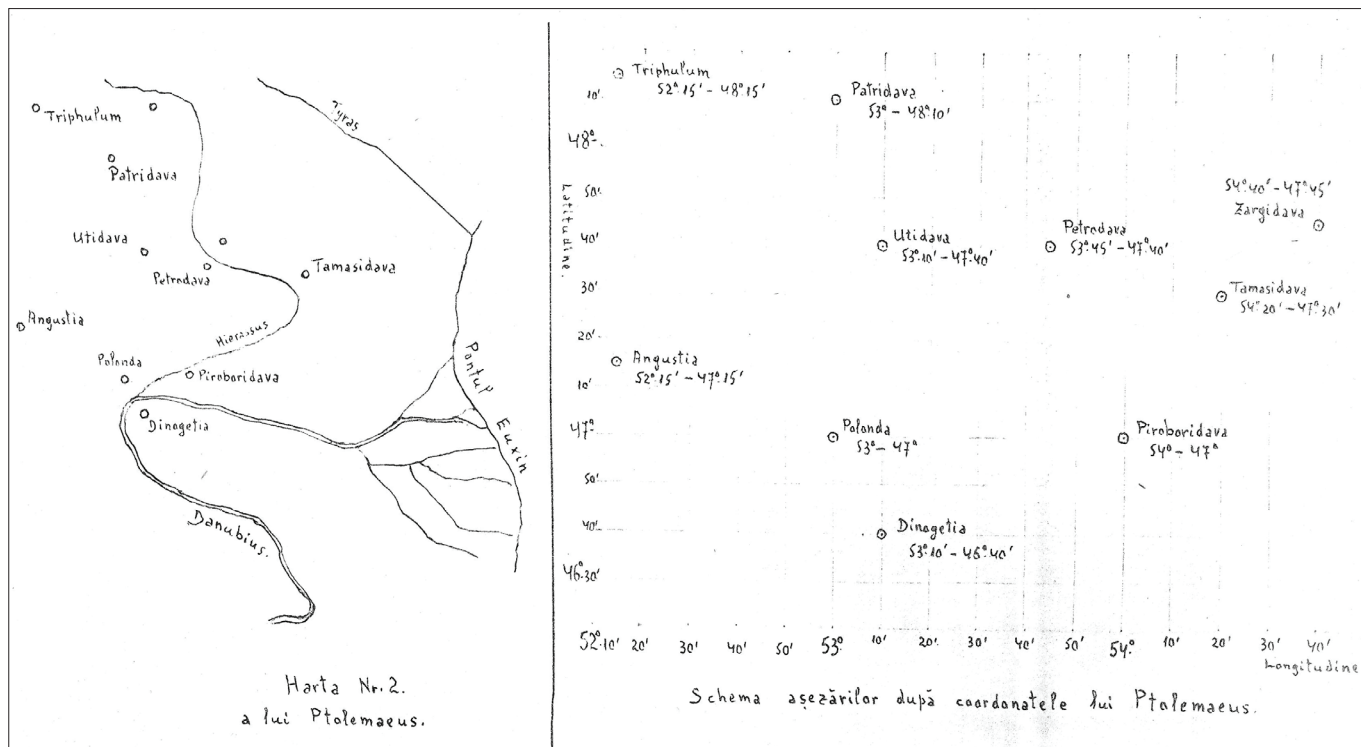 Triphulum
Patridava
Utidava
Petrodava
Tamasidava
Angustia
Hierassus
Polonda
Piroboridava
Dinogetia
Danubius.
Tyras
Pontul Euxin
Harta Nr. 2.
a lui Ptolemaeus.
Triphulum
52° 15' - 48° 15'
Patridava
53° - 48° 10'
54° 40' - 47° 45'
Zargidava
Utidava
53° 10' - 47° 40'
Petrodava
53° 45' - 47° 40'
Tamasidava
54° 20' - 47° 30'
Angustia
52° 15' - 47° 15'
Polonda
53° - 47°
Piroboridava
54° - 47°
Dinogetia
53° 10' - 46° 40'
Latitudine.
10'
48°
50'
40'
30'
20'
10'
47°
50'
40'
46° 30'
52° 10' 20' 30' 40' 50' 53° 10' 20' 30' 40' 50' 54° 10' 20' 30' 40'
Longitudine
Schema așezărilor după coordonatele lui Ptolemaeus.